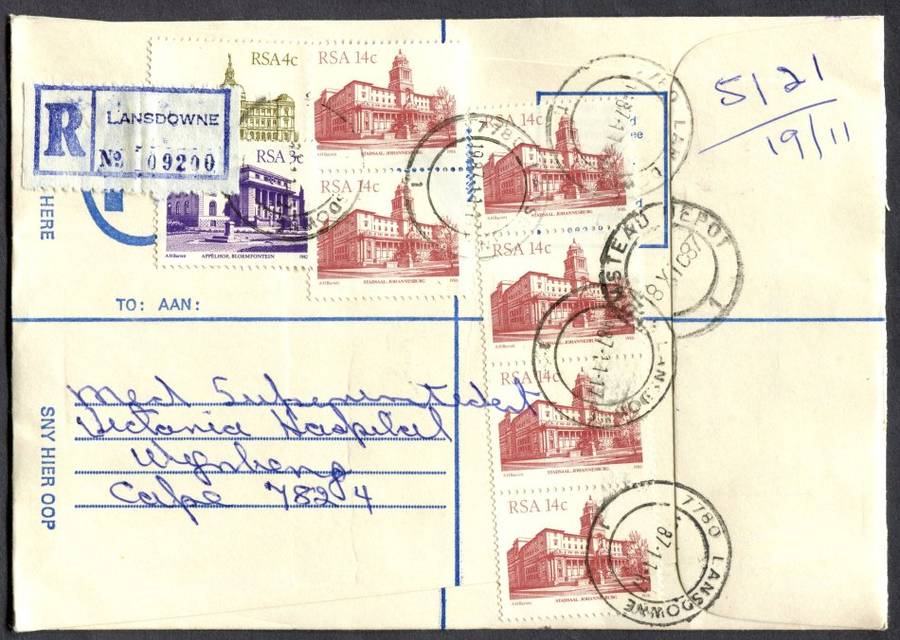 RSA 4c
RSA 14c
R
LANSDOWNE
No. 09200
RSA 3c
STADSAAL, JOHANNESBURG
RSA 14c
APPÈLHOF, BLOEMFONTEIN
1982
STADSAAL, JOHANNESBURG
14c
STADSAAL, JOHANNESBURG
RSA 14c
STADSAAL, JOHANNESBURG
RSA 14c
STADSAAL, JOHANNESBURG
RSA 14c
STADSAAL, JOHANNESBURG
5121
19/11
HERE
TO: AAN:
SNY HIER OOP
Med Superintendent
Victoria Hospital
Wynberg
Cape 7824
7780 LANSDOWNE
DEPOT